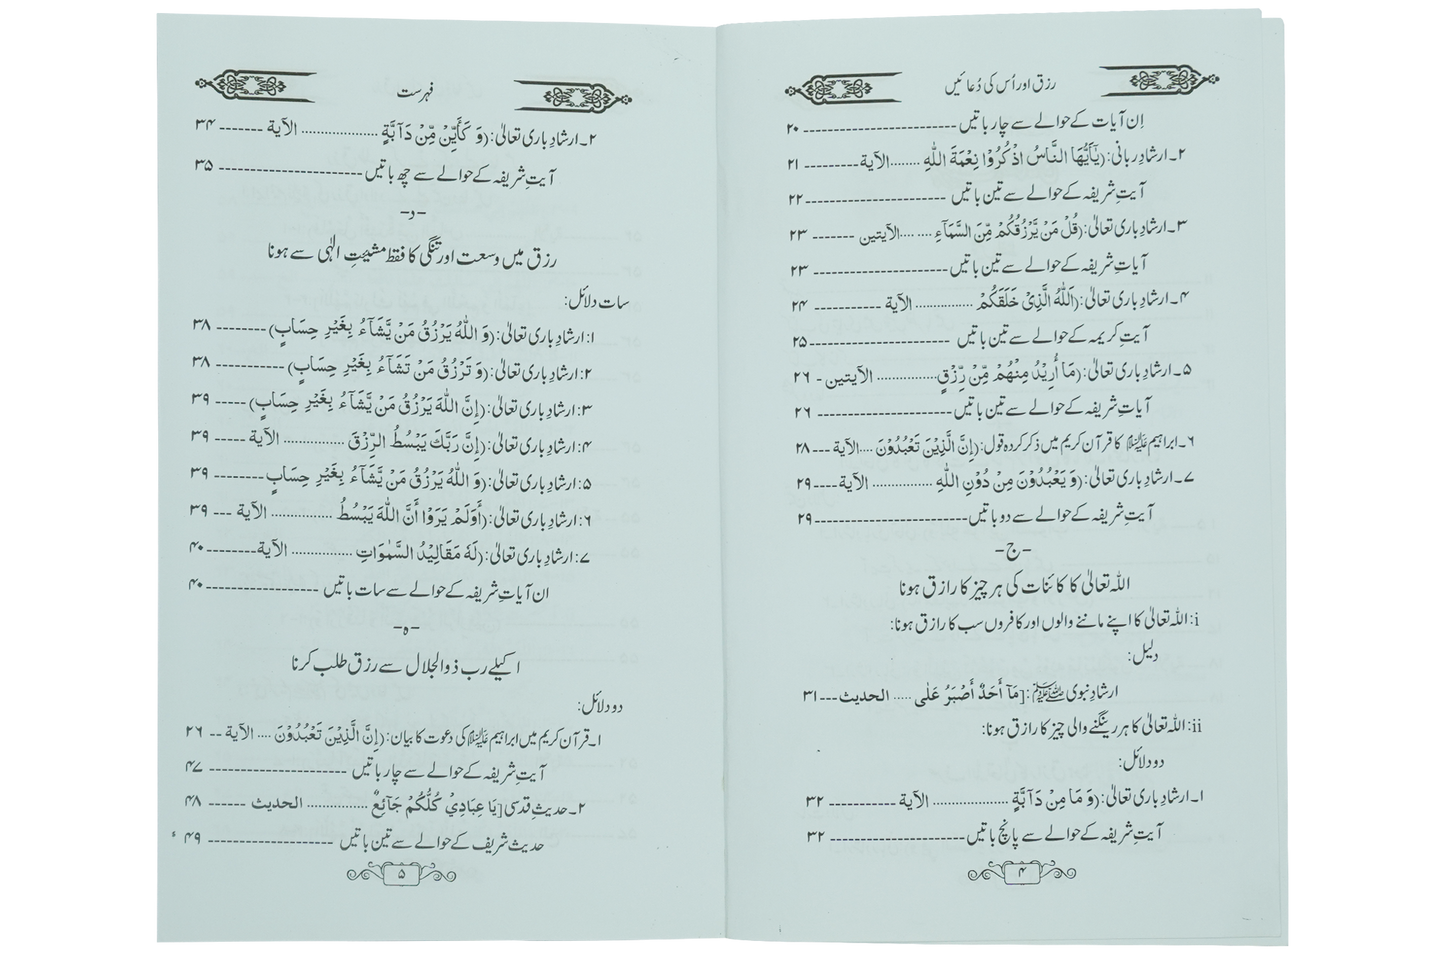 رزق اور اُس کی دُعائیں
اِن آیات کے حوالے سے چار باتیں ------------------------ ۲۰
۲۔ ارشادِ ربانی: (يٰٓاَيُّهَا النَّاسُ اذْكُرُوْا نِعْمَةَ اللّٰهِ ........ الآية --------- ۲۱
آیتِ شریفہ کے حوالے سے تین باتیں ---------------------- ۲۲
۳۔ ارشادِ باری تعالیٰ: (قُلْ مَنْ يَّرْزُقُكُمْ مِّنَ السَّمَآءِ ........ الآيتين ------- ۲۳
آیاتِ شریفہ کے حوالے سے تین باتیں --------------------- ۲۳
۴۔ ارشادِ باری تعالیٰ: (اَللّٰهُ الَّذِيْ خَلَقَكُمْ ............... الآية ----------- ۲۴
آیتِ کریمہ کے حوالے سے تین باتیں ---------------------- ۲۵
۵۔ ارشادِ باری تعالیٰ: (مَآ أُرِيْدُ مِنْهُمْ مِّنْ رِّزْقٍ ............... الآيتين - ۲۶
آیاتِ شریفہ کے حوالے سے تین باتیں --------------------- ۲۶
۶۔ ابراہیم علیہ السلام کا قرآن کریم میں ذکر کردہ قول: (إِنَّ الَّذِيْنَ تَعْبُدُوْنَ .... الآية --- ۲۸
۷۔ ارشادِ باری تعالیٰ: (وَ يَعْبُدُوْنَ مِنْ دُوْنِ اللّٰهِ ............... الآية ---- ۲۹
آیتِ شریفہ کے حوالے سے دو باتیں ------------------------ ۲۹
-ج-
اللہ تعالیٰ کا کائنات کی ہر چیز کا رازق ہونا
i: اللہ تعالیٰ کا اپنے ماننے والوں اور کافروں سب کا رازق ہونا:
دلیل:
ارشادِ نبوی ﷺ: [مَآ أَحَدٌ أَصْبَرُ عَلٰى ..... الحديث --- ۳۱
ii: اللہ تعالیٰ کا ہر رینگنے والی چیز کا رازق ہونا:
دو دلائل:
۱۔ ارشادِ باری تعالیٰ: (وَ مَا مِنْ دَآبَّةٍ .................. الآية ----------- ۳۲
آیتِ شریفہ کے حوالے سے پانچ باتیں --------------------- ۳۲
۴
فہرست
۲۔ ارشادِ باری تعالیٰ: (وَ كَأَيِّنْ مِّنْ دَآبَّةٍ .................. الآية ------- ۳۴
آیتِ شریفہ کے حوالے سے چھ باتیں ----------------------- ۳۵
-د-
رزق میں وسعت اور تنگی کا فقط مشیتِ الٰہی سے ہونا
سات دلائل:
۱: ارشادِ باری تعالیٰ: (وَ اللّٰهُ يَرْزُقُ مَنْ يَّشَآءُ بِغَيْرِ حِسَابٍ) -------- ۳۸
۲: ارشادِ باری تعالیٰ: (وَ تَرْزُقُ مَنْ تَشَآءُ بِغَيْرِ حِسَابٍ) ----------- ۳۸
۳: ارشادِ باری تعالیٰ: (إِنَّ اللّٰهَ يَرْزُقُ مَنْ يَّشَآءُ بِغَيْرِ حِسَابٍ) ----- ۳۹
۴: ارشادِ باری تعالیٰ: (إِنَّ رَبَّكَ يَبْسُطُ الرِّزْقَ ............... الآية ----- ۳۹
۵: ارشادِ باری تعالیٰ: (وَ اللّٰهُ يَرْزُقُ مَنْ يَّشَآءُ بِغَيْرِ حِسَابٍ --------- ۳۹
۶: ارشادِ باری تعالیٰ: (أَوَلَمْ يَرَوْا أَنَّ اللّٰهَ يَبْسُطُ ............... الآية --- ۳۹
۷: ارشادِ باری تعالیٰ: (لَهٗ مَقَالِيْدُ السَّمٰوَاتِ ............... الآية -------- ۴۰
ان آیاتِ شریفہ کے حوالے سے سات باتیں ------------------ ۴۰
-ہ-
اکیلے رب ذوالجلال سے رزق طلب کرنا
دو دلائل:
۱۔ قرآن کریم میں ابراہیم علیہ السلام کی دعوت کا بیان: (إِنَّ الَّذِيْنَ تَعْبُدُوْنَ .... الآية -- ۲۶
آیتِ شریفہ کے حوالے سے چار باتیں ---------------------- ۴۷
۲۔ حدیثِ قدسی [يَا عِبَادِيْ كُلُّكُمْ جَآئِعٌ ............... الحديث ------ ۴۸
حدیث شریف کے حوالے سے تین باتیں -------------------- ۴۹
۵